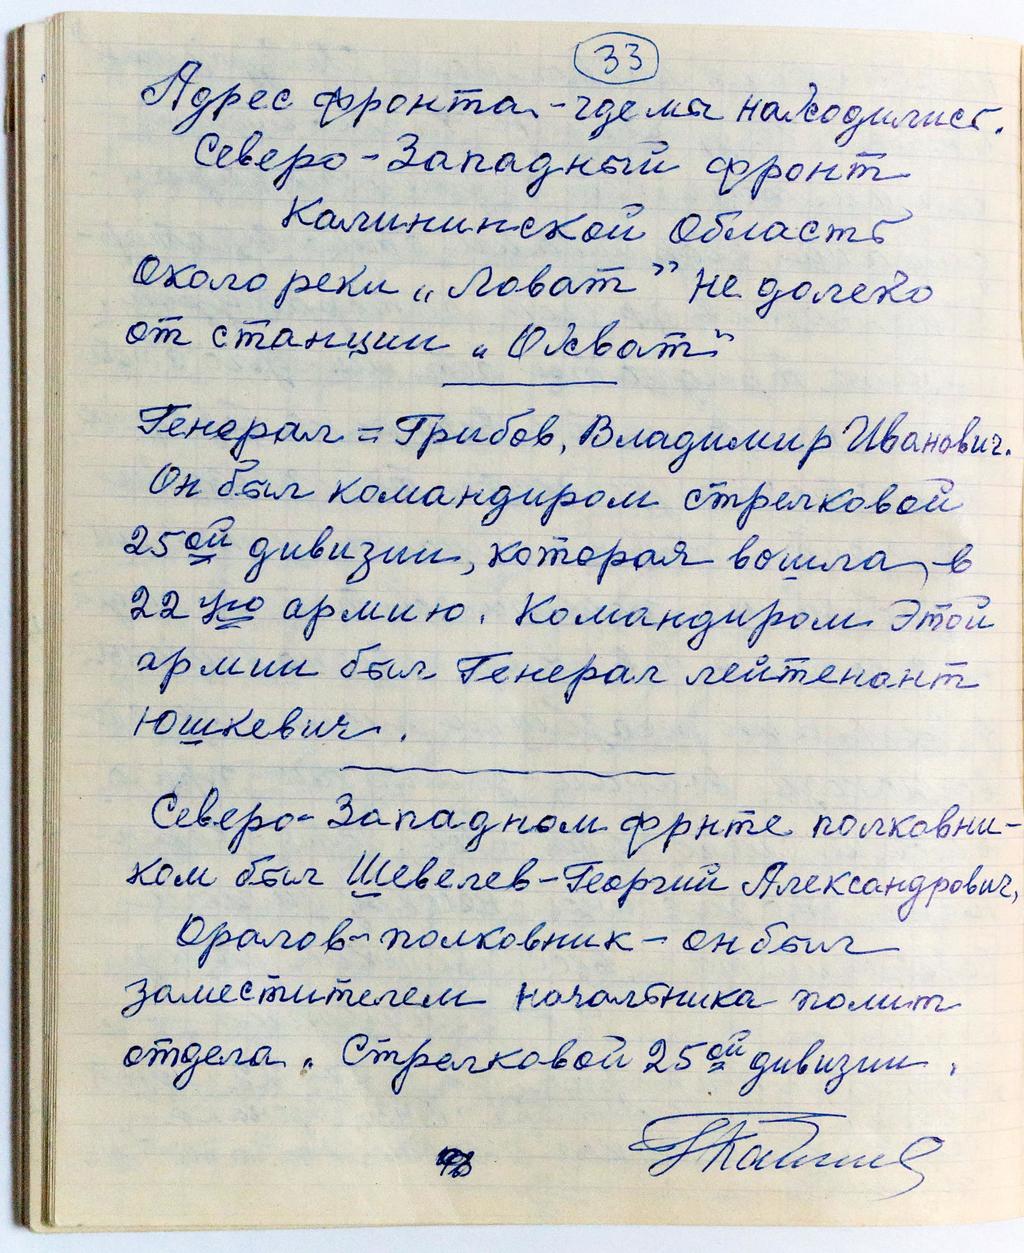 33
Адрес фронта - где мы находились.
Северо - Западный фронт
Калининской Область
Около реки „Ловат” не далеко
от станции „Охват”
Генерал = Грибов, Владимир Иванович.
Он был командиром стрелковой
25ой дивизии, которая вошла в
22ую армию. Командиром этой
армии был Генерал лейтенант
Юшкевич.
Северо-Западном фрнте полковни-
ком был Шевелев - Георгий Александрович,
Оралов - полковник - он был
заместителем начальника полит
отдела. Стрелковой 25ой дивизии.